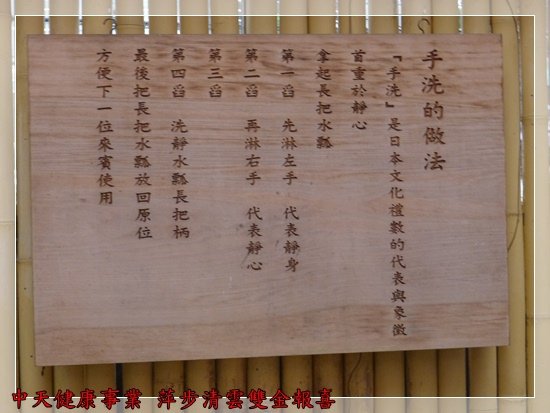 手洗的做法
『手洗』是日本文化禮數的代表與象徵
首重於靜心
拿起長把水瓢
第一舀 先淋左手 代表靜身
第二舀 再淋右手 代表靜心
第三舀
第四舀 洗靜水瓢長把柄
最後把長把水瓢放回原位
方便下一位來賓使用
中天健康事業 萍步清雲雙金報喜